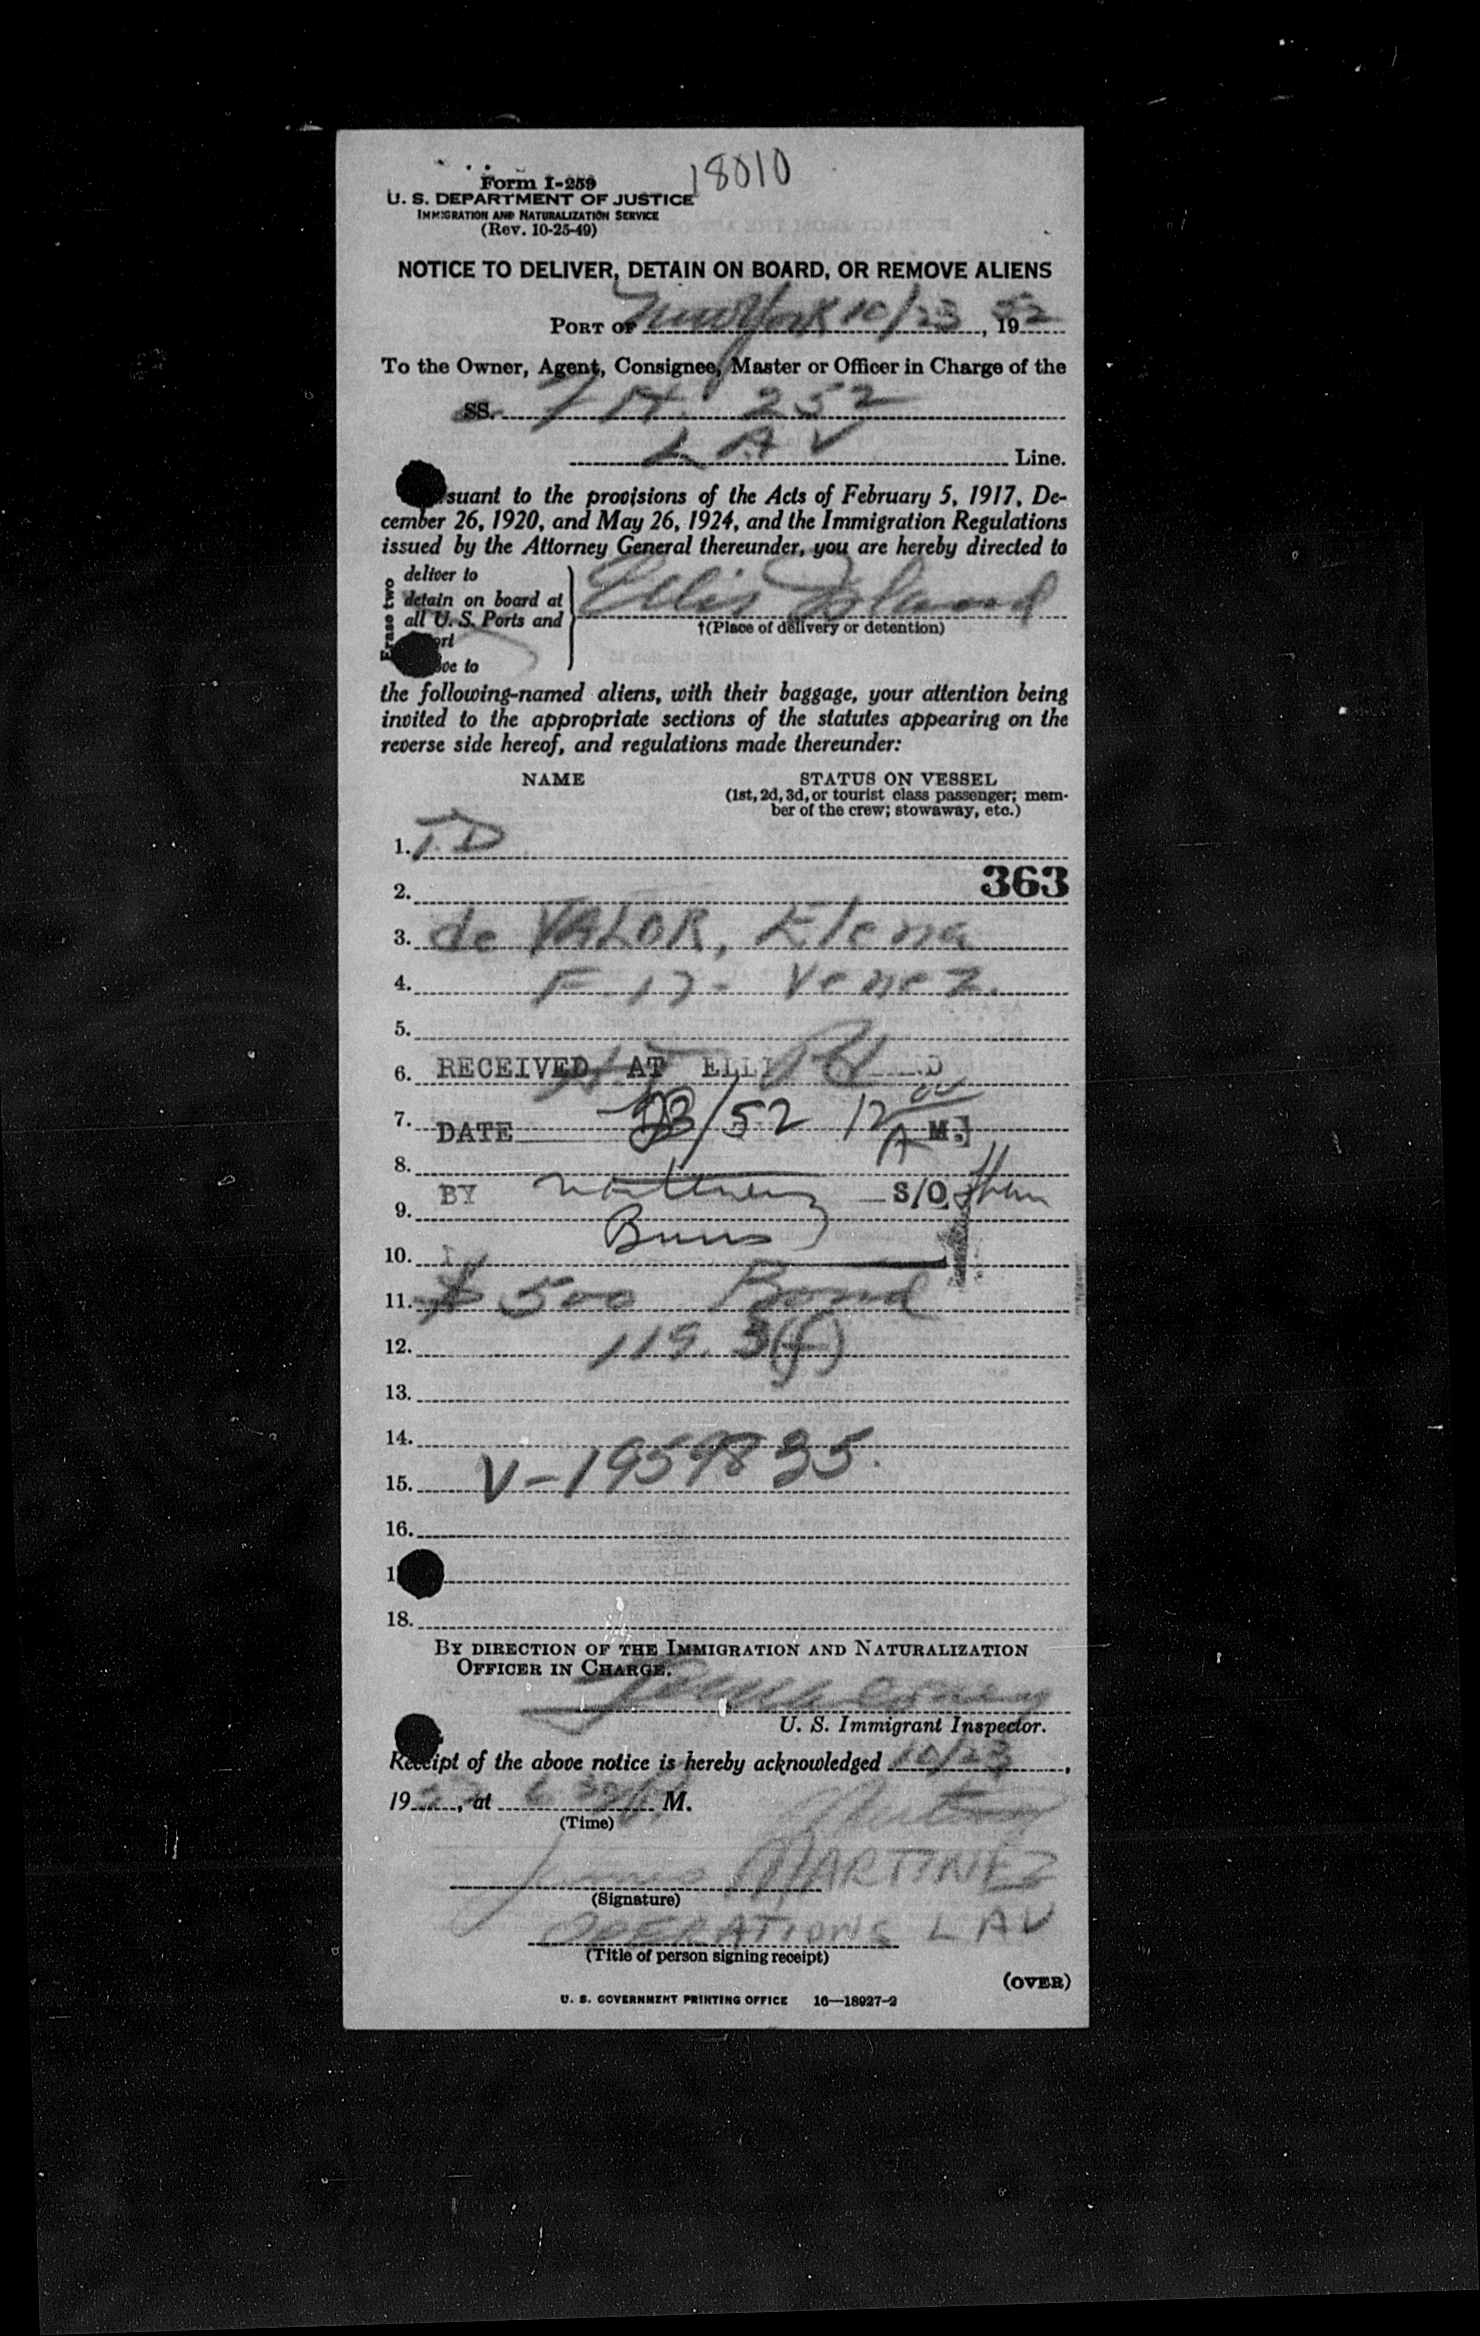 18010
Form I-259
U. S. DEPARTMENT OF JUSTICE
IMMIGRATION AND NATURALIZATION SERVICE
(Rev. 10-25-49)
NOTICE TO DELIVER, DETAIN ON BOARD, OR REMOVE ALIENS
PORT OF New York 10/23, 1952
To the Owner, Agent, Consignee, Master or Officer in Charge of the
SS. 252
LAV Line.
suant to the provisions of the Acts of February 5, 1917, De-
cember 26, 1920, and May 26, 1924, and the Immigration Regulations
issued by the Attorney General thereunder, you are hereby directed to
Erase two
deliver to
detain on board at
all U. S. Ports and
Ellis Island
†(Place of delivery or detention)
the following-named aliens, with their baggage, your attention being
invited to the appropriate sections of the statutes appearing on the
reverse side hereof, and regulations made thereunder:
NAME STATUS ON VESSEL
(1st, 2d, 3d, or tourist class passenger; mem-
ber of the crew; stowaway, etc.)
1. T.D
363
2.
3. de VALOR, Elena
4. F-17- Venez.
5.
6. RECEIVED AT
7. DATE 23/52 12 00 A M.
8.
BY S/O
9. Burns
10.
11. $500 Bond
12. 119.3(f)
13.
14.
15. V-1959835.
16.
18.
BY DIRECTION OF THE IMMIGRATION AND NATURALIZATION
OFFICER IN CHARGE.
U. S. Immigrant Inspector.
Receipt of the above notice is hereby acknowledged 10/23,
1952, at 6 30 P M.
(Time)
MARTINEZ
(Signature)
OPERATIONS LAV
(Title of person signing receipt)
(OVER)
U. S. GOVERNMENT PRINTING OFFICE 16—18927-2